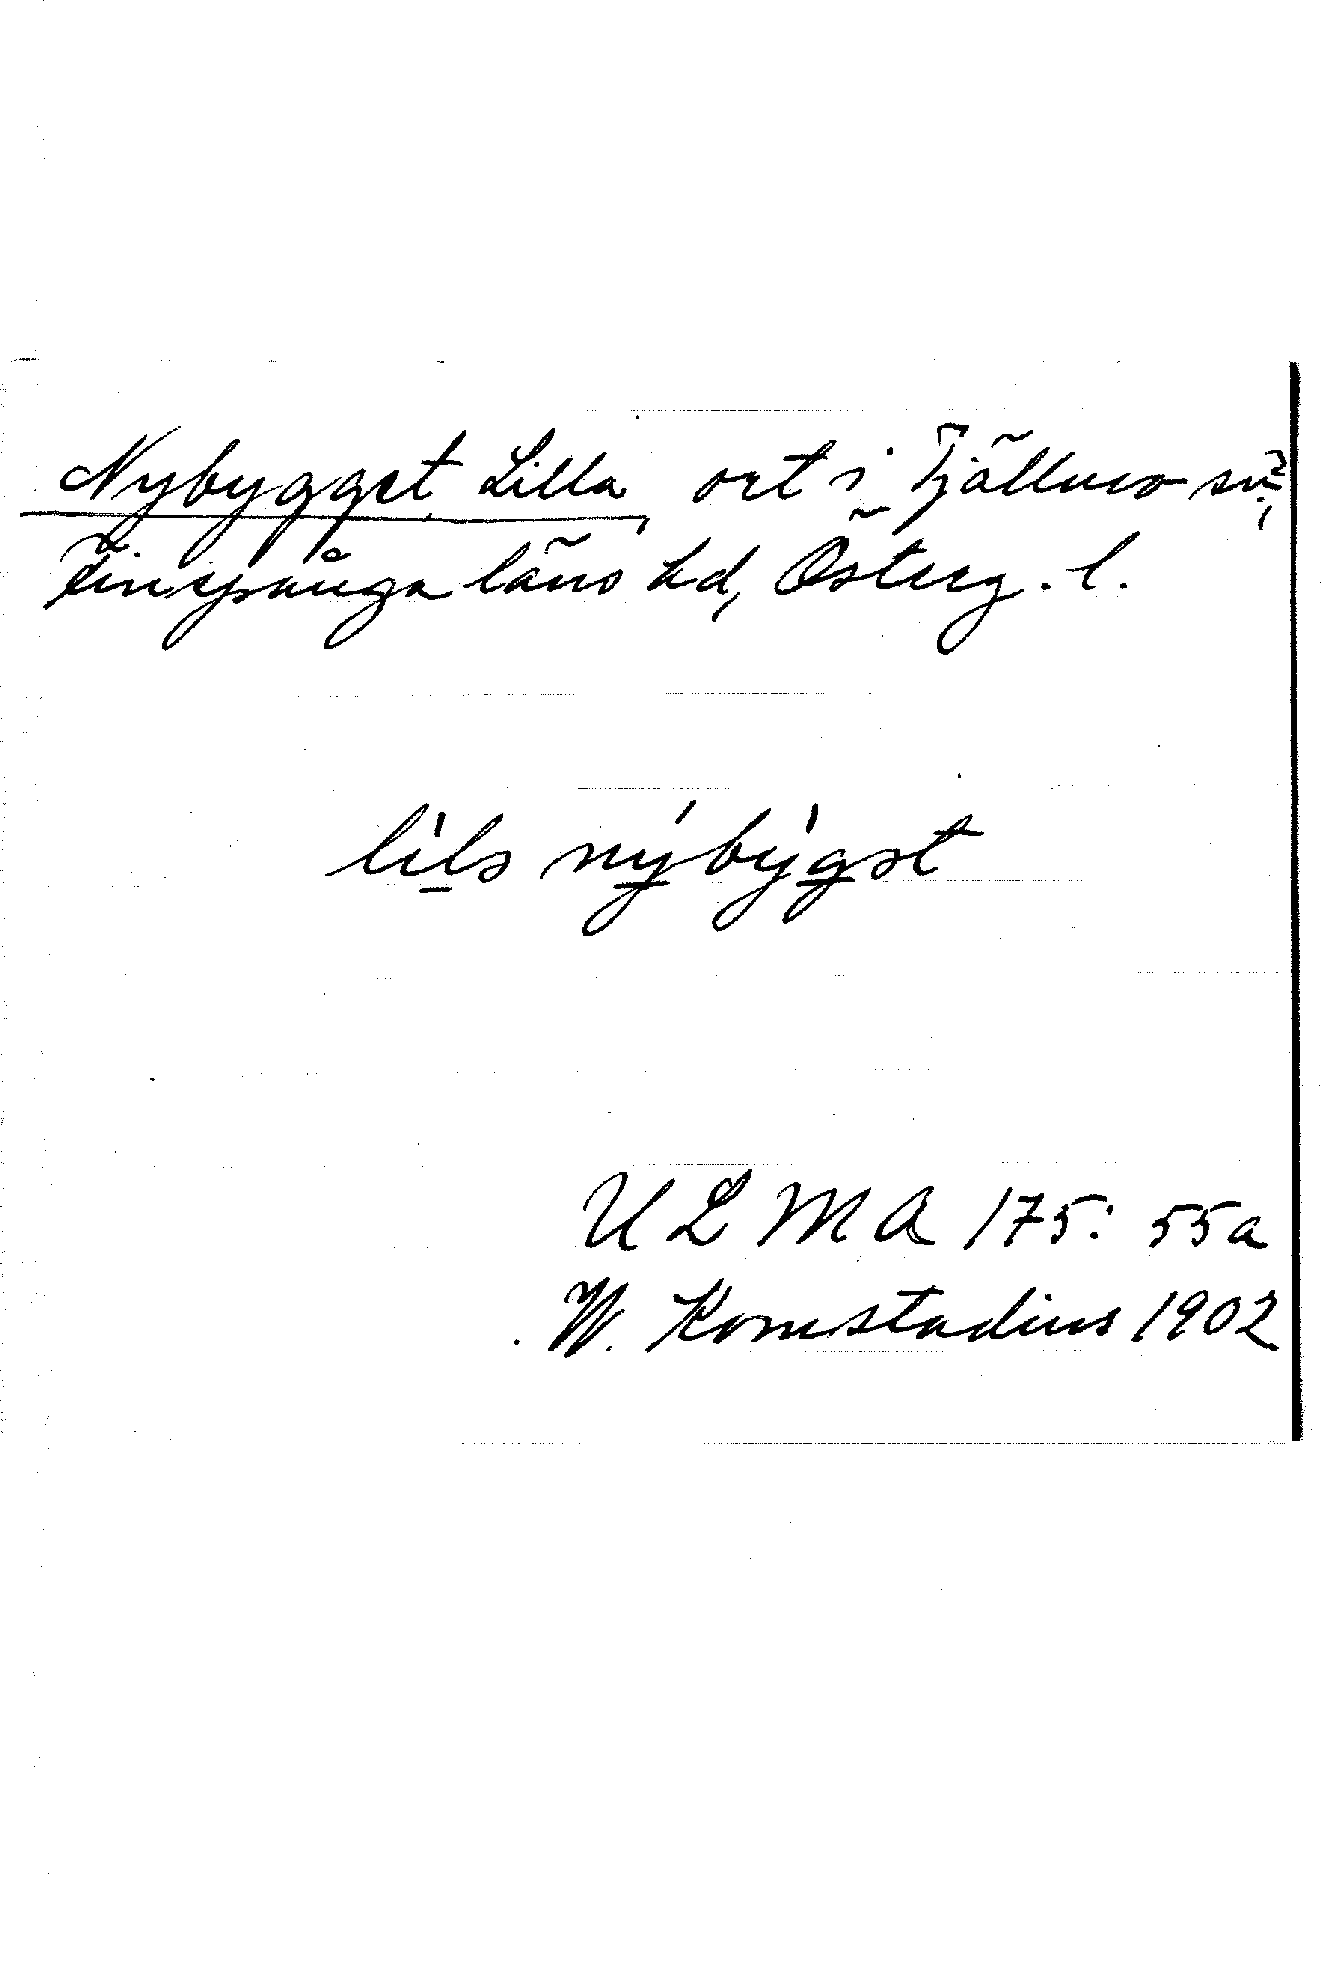 Nybygget, Lilla, ort i Tjällmo sn,
Finspånga läns hd, Österg. l.
lìlə nýbỳgət
ULMA 175: 55a
W. Komstadius 1902